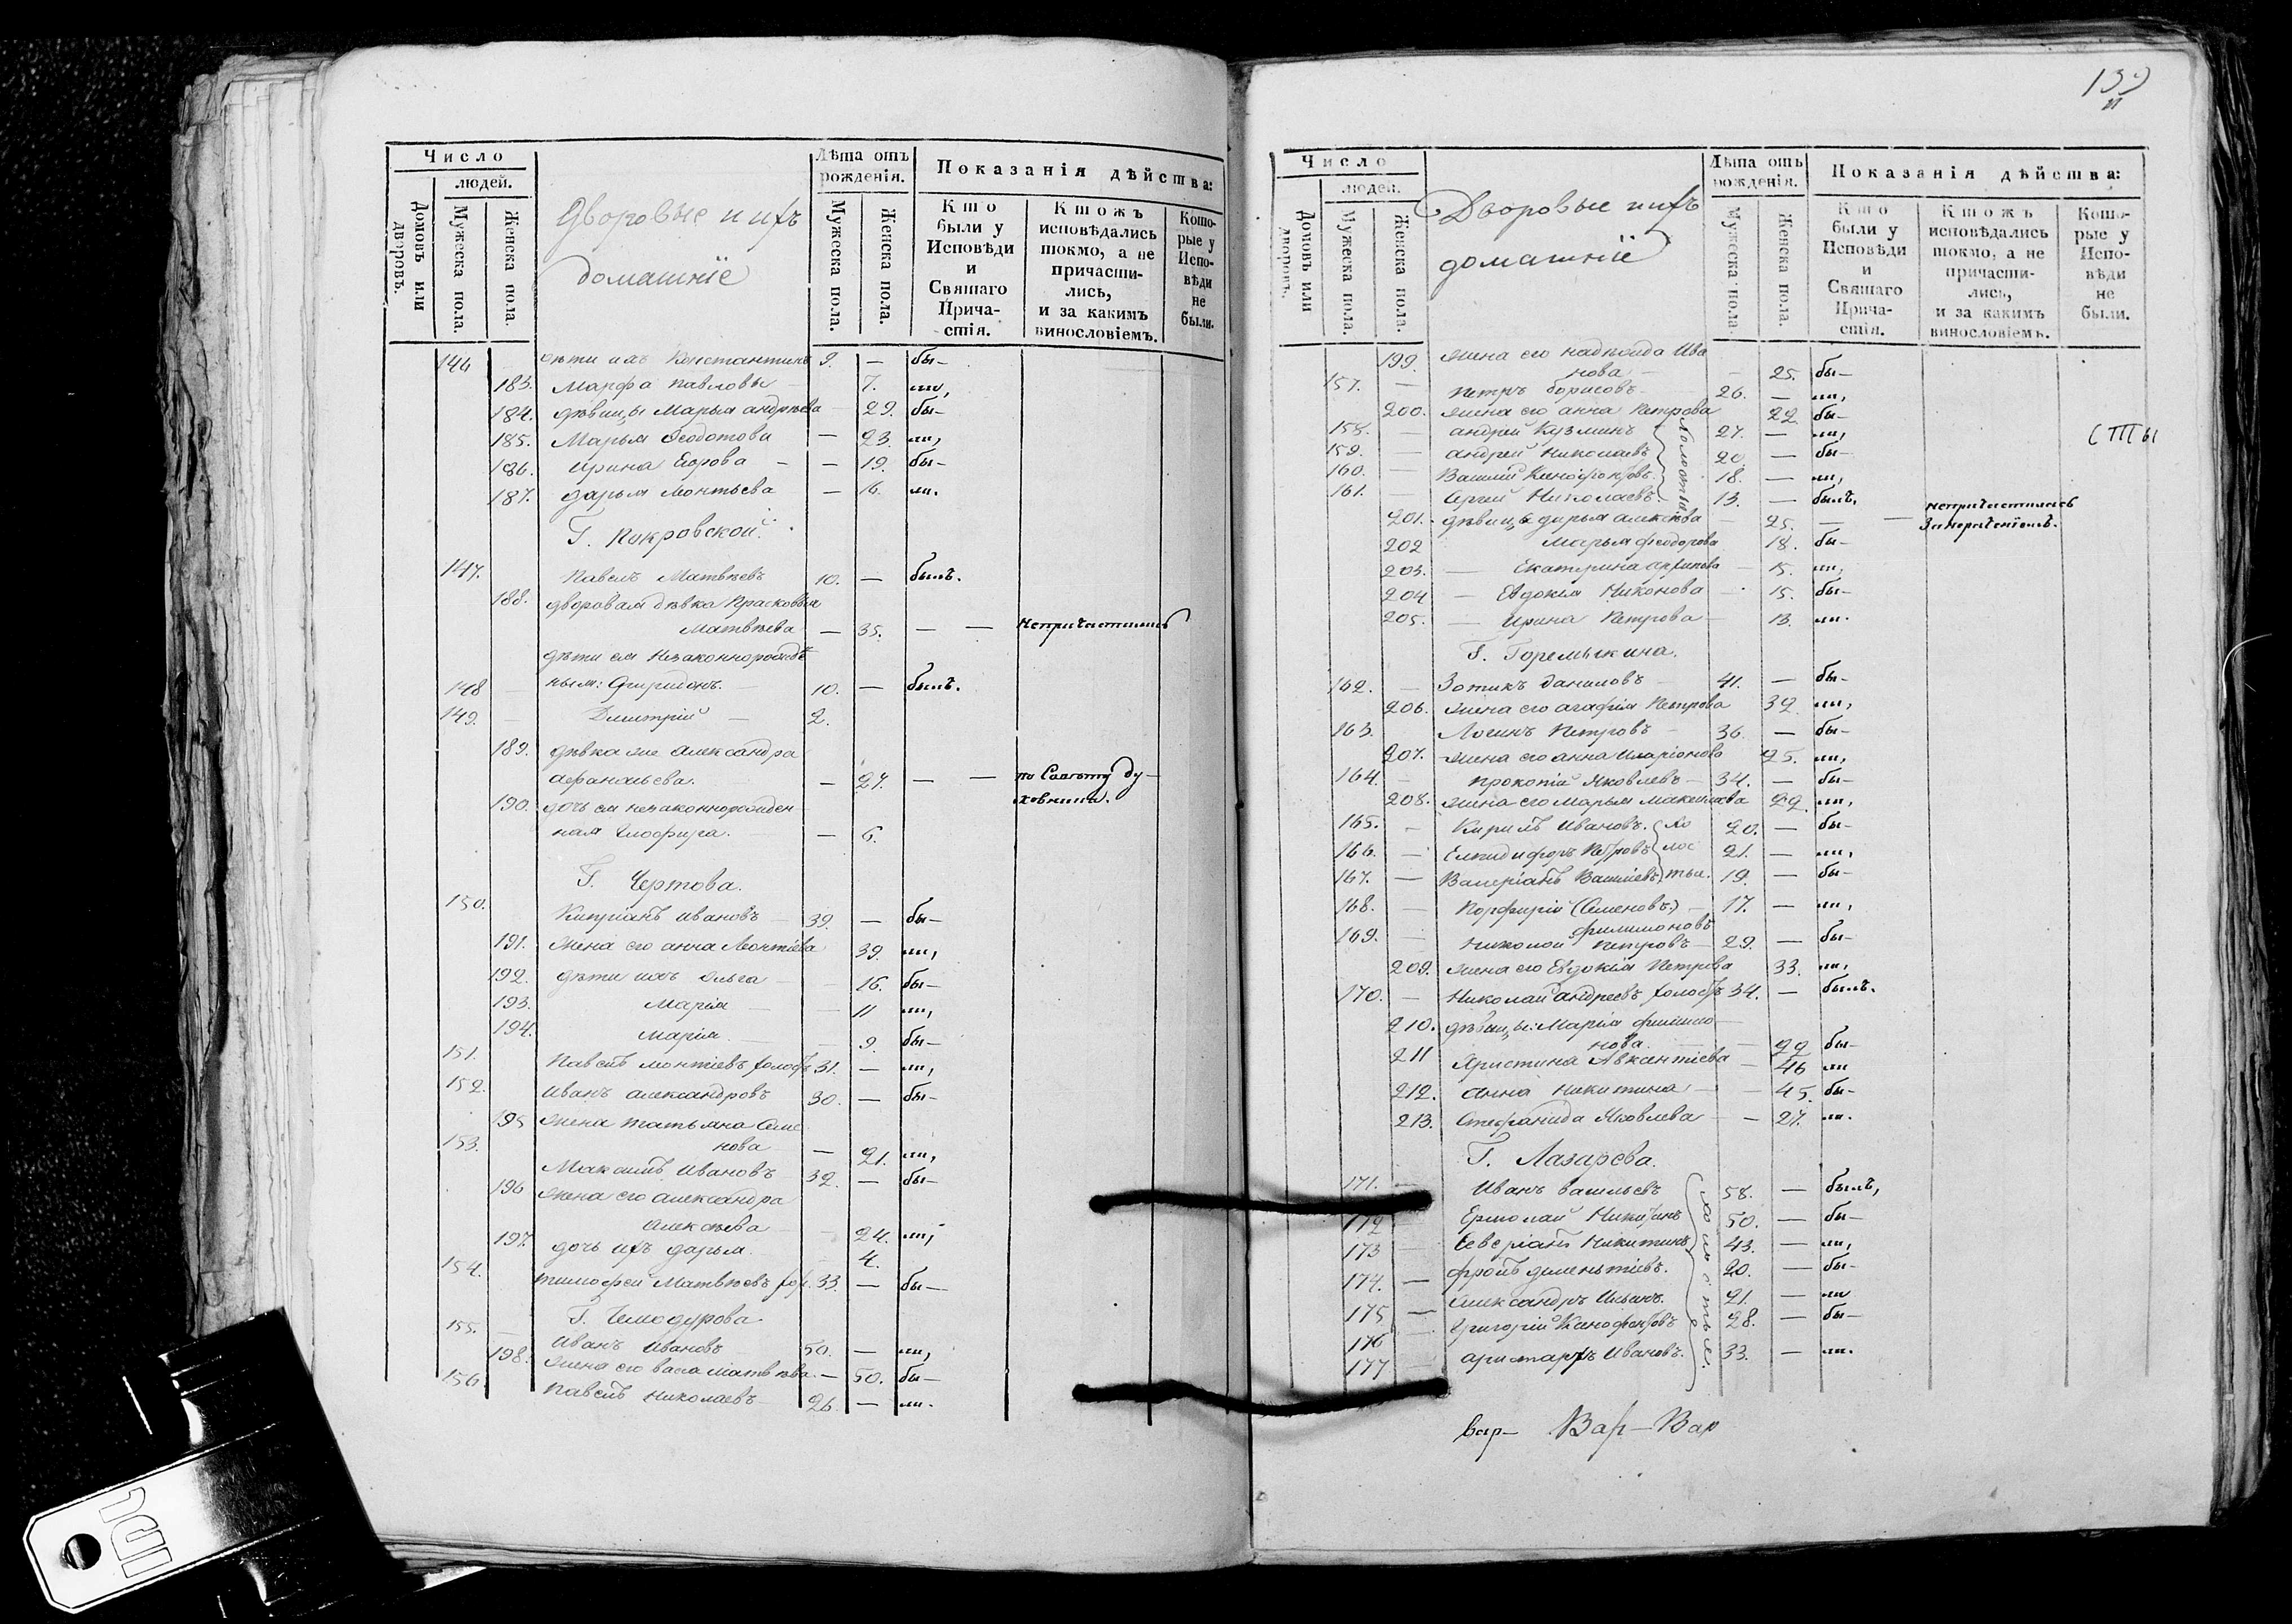 Число людей. Лѣта отъ рожденія. Показанія дѣйства:
Домовъ или дворовъ. Мужеска пола. Женска пола. Мужеска пола. Женска пола. Кто были у Исповѣди и Святаго Причастія. Ктожъ исповѣдались токмо, а не причастились, и за какимъ винословіемъ. Которые у Исповѣди не были.
Дворовые и ихъ
домашніе
146 дѣти ихъ Константинъ 9. — бы—
183. Марфа Павловы — 7. ли,
184. дѣвицы Марья андрѣева 29. бы—
185. Марья Ѳеодотова — 23. ли,
186. Ирина Егорова — — 19. бы—
187. дарья Леонтьева — 16. ли.
Г. Покровской.
147. Павелъ Матвѣевъ 10. — былъ.
188. дворовая дѣвка Прасковья
Матвѣева — 35. — — непричастилась
дѣти ея Незаконнорожде
148 ныя: 10. — былъ.
149. Димитрій — 2.
189. дѣвка Александра
Афанасьева. — 27. — — по Совѣту ду—
ховника.
190. дочь ея незаконнорожден
ная Глафира. — 6.
Г. Чертова.
150. Кипріанъ Ивановъ 39. — бы—
191. жена его анна Леонтіева 39. ли,
192. дѣти ихъ Ольга 16. бы—
193. Марія 11 ли,
194. Марія 9. бы—
151. Павелъ Леонтіевъ холостъ 31. — ли,
152. Иванъ Александровъ 30. — бы—
195 жена Татьяна Семе
нова — 21. ли,
153. Максимъ Ивановъ 32. — бы—
196 жена его александра
Алексѣева 24. ли,
197. дочь ихъ дарья. 4.
154. тимофей Матвѣевъ хол. 33. — бы—
Г. Чемодурова
155. Иванъ Ивановъ 50. — ли,
198. жена его васса Матвѣева. — 50. бы—
156. Павелъ Николаевъ 26. — ли.
Число людей. Лѣта отъ рожденія. Показанія дѣйства:
Домовъ или дворовъ. Мужеска пола. Женска пола. Мужеска пола. Женска пола. Кто были у Исповѣди и Святаго Причастія. Ктожъ исповѣдались токмо, а не причастились, и за какимъ винословіемъ. Которые у Исповѣди не были.
Дворовые и ихъ
домашніе
199. жена его надежда Ива
нова — 25. бы—
157. — Петръ борисовъ 26. — ли,
200. жена его анна Петрова 22 бы—
158. — андрей Кузминъ 27. — ли,
холосты
159. — андрей Николаевъ 20 — бы—
160. — Василій Ксенофонтовъ 18. — ли,
161. — Сергей Николаевъ. 13. — былъ.
непричастилась
201. дѣвицы дарья алексѣева 25. — —
202 Марья ѳеодорова 18. бы—
203. — Екатерина архипова 15. ли,
204 — Евдокія Никонова 15. бы—
205. — Ирина Петрова 13. ли.
Г. Горемыкина.
162. — Зотикъ даниловъ 41. — бы—
206. жена его агафія Петрова 32 ли,
163. Логинъ Петровъ 36. — бы—
207. жена его анна Иларіонова 25. ли,
164. — прокопій Яковлевъ — 34. — бы—
208. жена его Марья Максимова 22. ли,
165. — Кирилъ Ивановъ. 20. — бы—
холостые.
166. — Елпидифоръ Петровъ 21. — ли,
167. — Валеріанъ Васильевъ 19. — бы—
168. — Порфирій (Семеновъ.) 17. — ли,
филимоновъ
169. — Николай Петровъ 29. — бы—
209. жена его Евдокія Петрова 33. ли,
170. — Николай андреевъ холостъ 34. — былъ.
210. дѣвицы: Марія филимо—
нова. 22 бы—
211 Христина Авксентіева — 46 ли
212. анна Никитина — 45. бы—
213. Стефанида Яковлева — 27. ли.
Г. Лазарева.
171. Иванъ васильевъ 58. — былъ,
172 Ермолай Никитинъ 50. — бы—
173 Северіанъ Никитинъ 43. — ли,
холостые.
174. — фролъ дементіевъ. 20. — бы—
175 — александръ Ильинъ. 21. — ли
176 Григорій Ксенофонтовъ 28. — бы—
177 аристархъ Ивановъ. 33. — ли.
вар— Вар—Вар